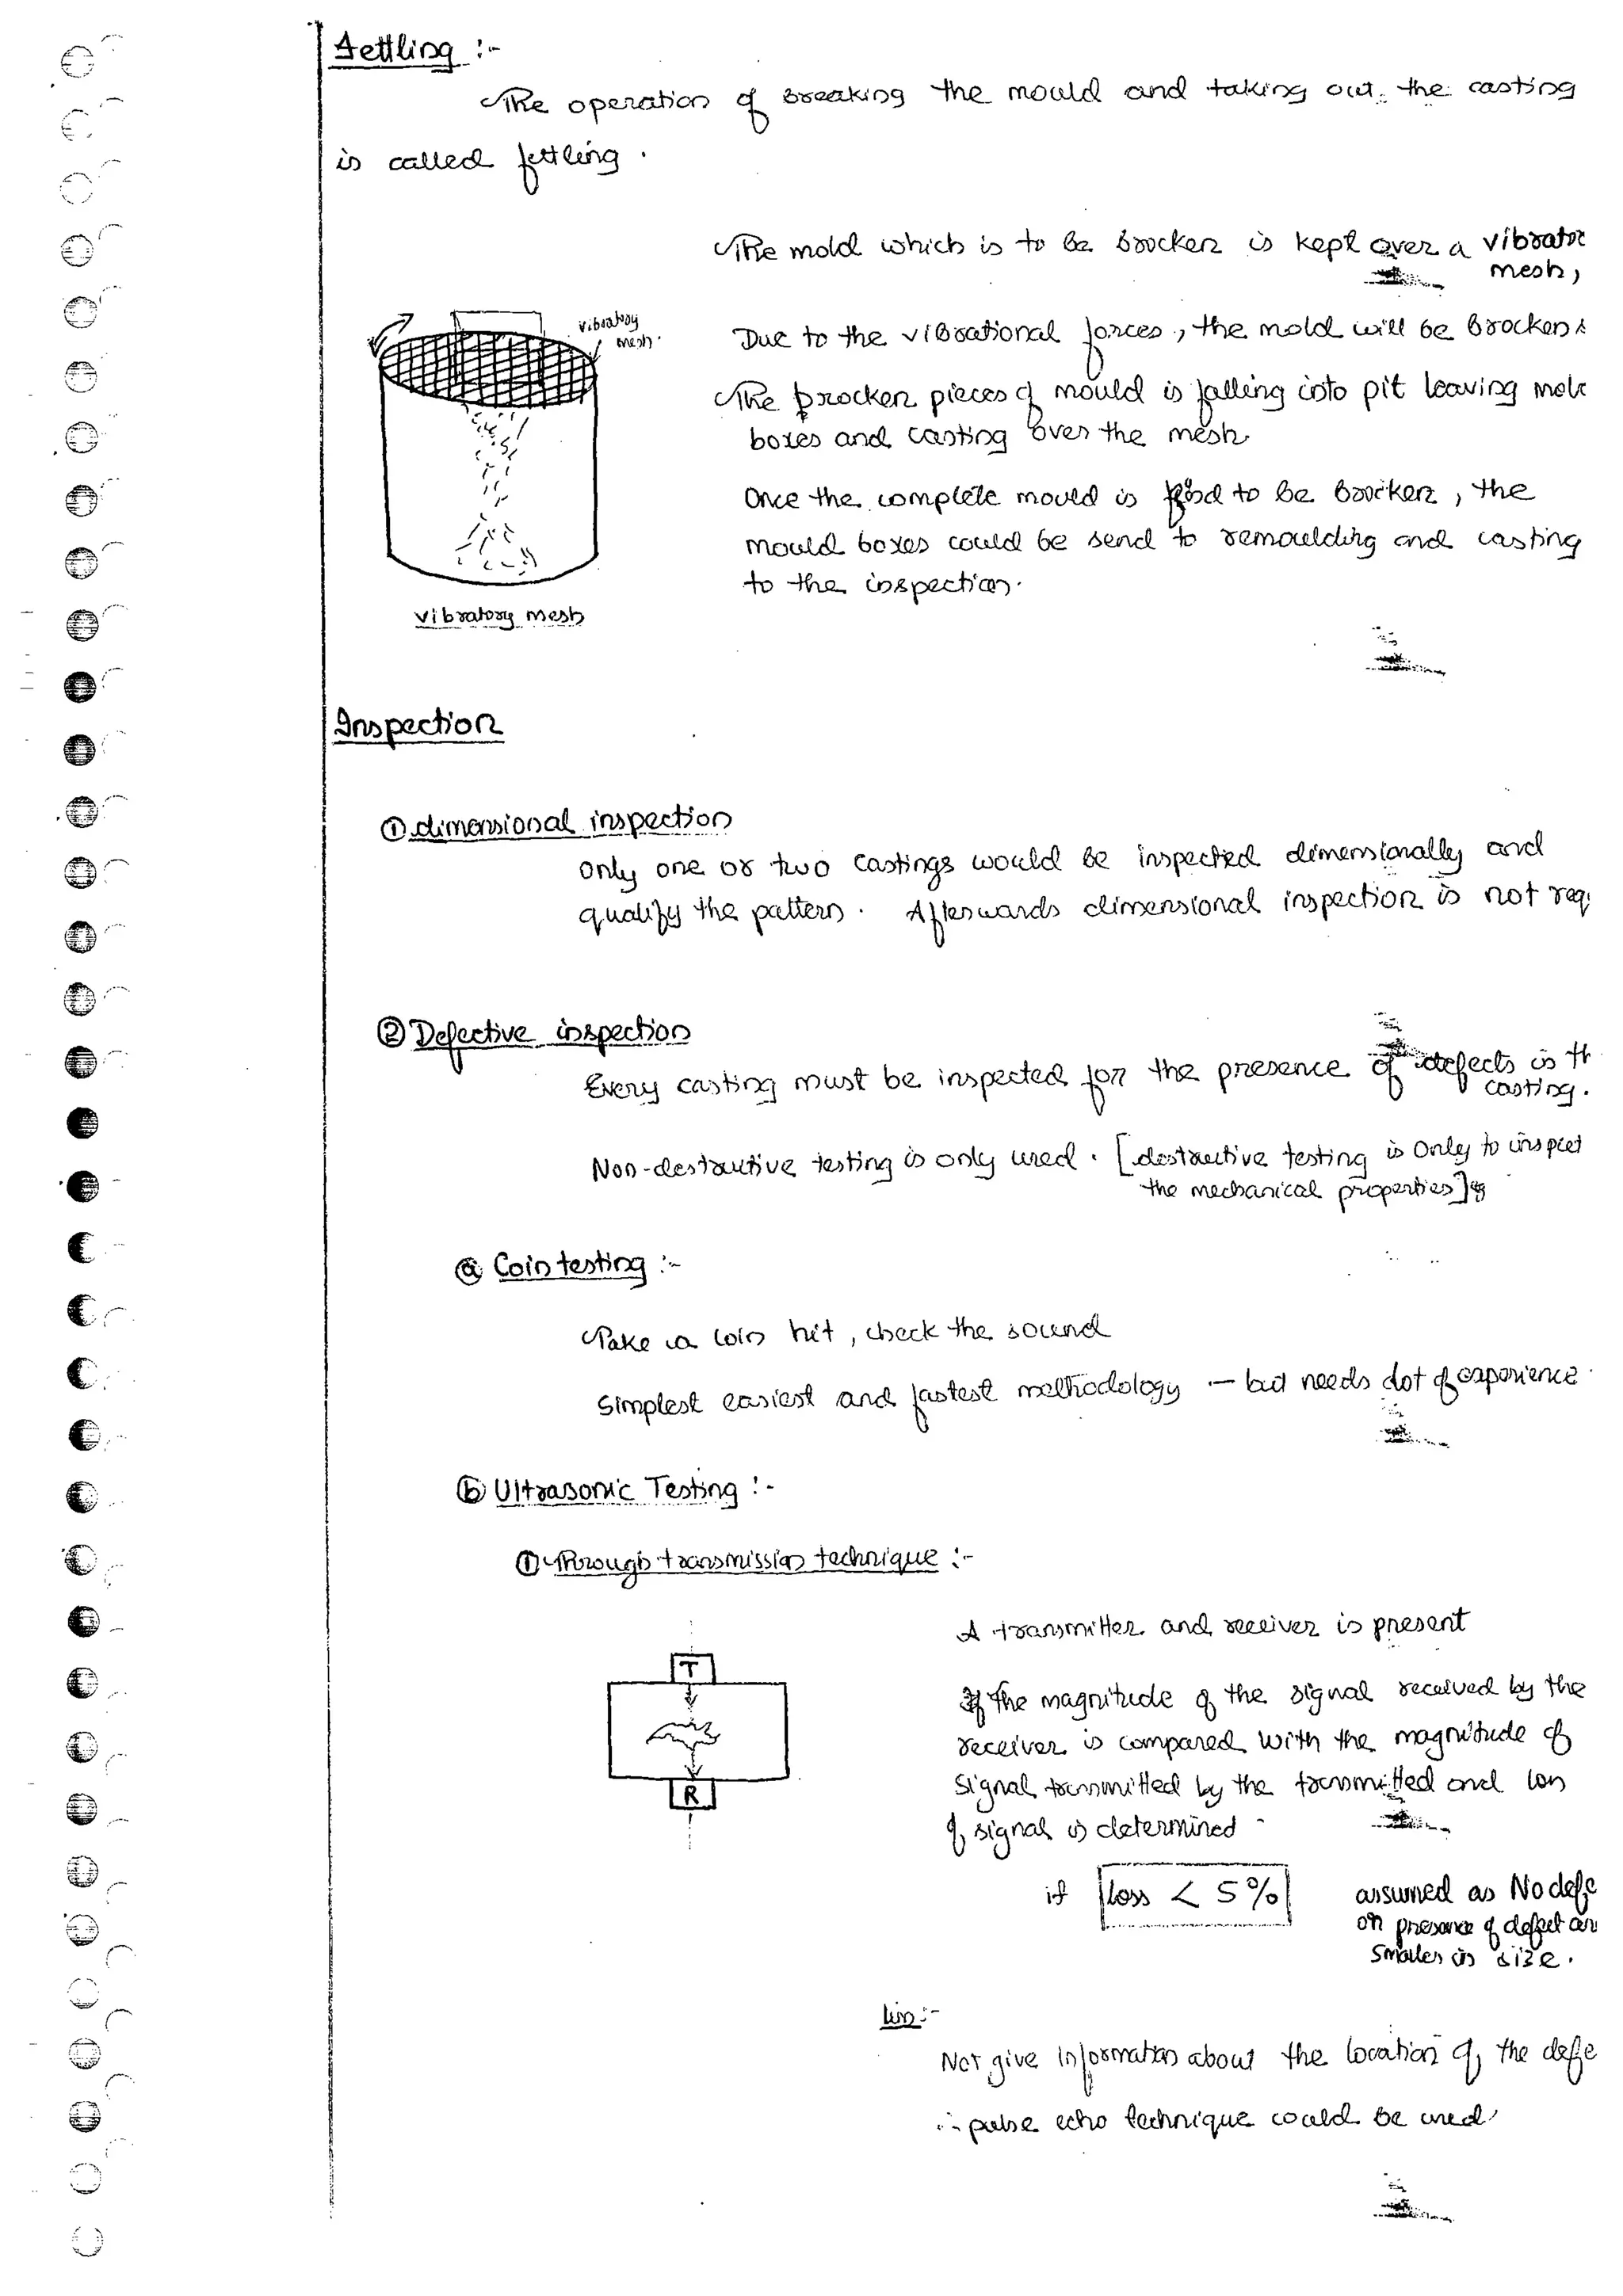 Fettling :-
The operation of breaking the mould and taking out the casting
is called fettling.
The mold which is to be brocken is kept over a vibrator
mesh,
vibratory
mesh.
Due to the vibrational forces, the mold will be brocken &
The brocken pieces of mould is falling into pit leaving mol
boxes and casting over the mesh
Once the complete mould is to be brocken, the
mould boxes could be send to remoulding and casting
to the inspection.
vibratory mesh
Inspection
① dimensional inspection
Only one or two castings would be inspected dimensionally and
qualify the pattern. Afterwards dimensional inspection is not req
② Defective inspection
Every casting must be inspected for the presence of defects is th
casting.
Non-destructive testing is only used. [destructive testing is only to inspect
the mechanical properties]
ⓐ Coin testing :-
Take a coin hit, check the sound
Simplest easiest and fastest methodology - but needs lot of experience.
ⓑ Ultrasonic Testing :-
① Through transmission technique :-
A transmitter and receiver is present
T
If the magnitude of the signal received by the
receiver is compared with the magnitude of
signal transmitted by the transmitted and loss
R
of signal is determined
if loss < 5% assumed as No defe
or presence of defect are
smaller in size.
Lim:-
Not give information about the location of the defe
∴ pulse echo technique could be used.